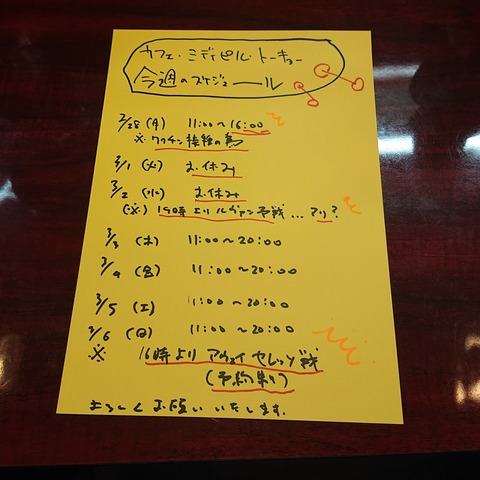 カフェ・ミディピル・トーキョー
今週のスケジュール
2/28 (月) 11:00~16:00
※ワクチン接種の為
3/1 (火) お休み
3/2 (水) お休み
(※) 19時よりルヴァン予戦...アリ?
3/3 (木) 11:00~20:00
3/4 (金) 11:00~20:00
3/5 (土) 11:00~20:00
3/6 (日) 11:00~20:00
※ 16時より アウェイ セレッソ戦
(予約制)
よろしくお願いいたします.